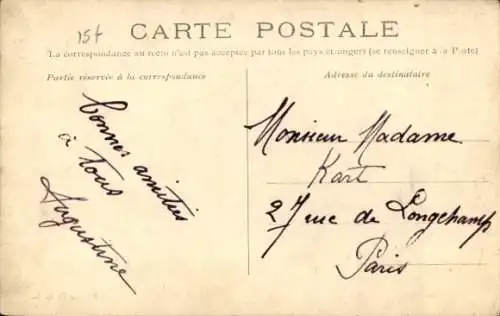 15f
CARTE POSTALE
La correspondance au recto n'est pas acceptée par tous les pays étrangers (se renseigner à la Poste)
Partie réservée à la correspondance
Adresse du destinataire
bonnes amitiés
à tous
Augustine
Monsieur Madame
Kart
27 rue de Longchamp
Paris